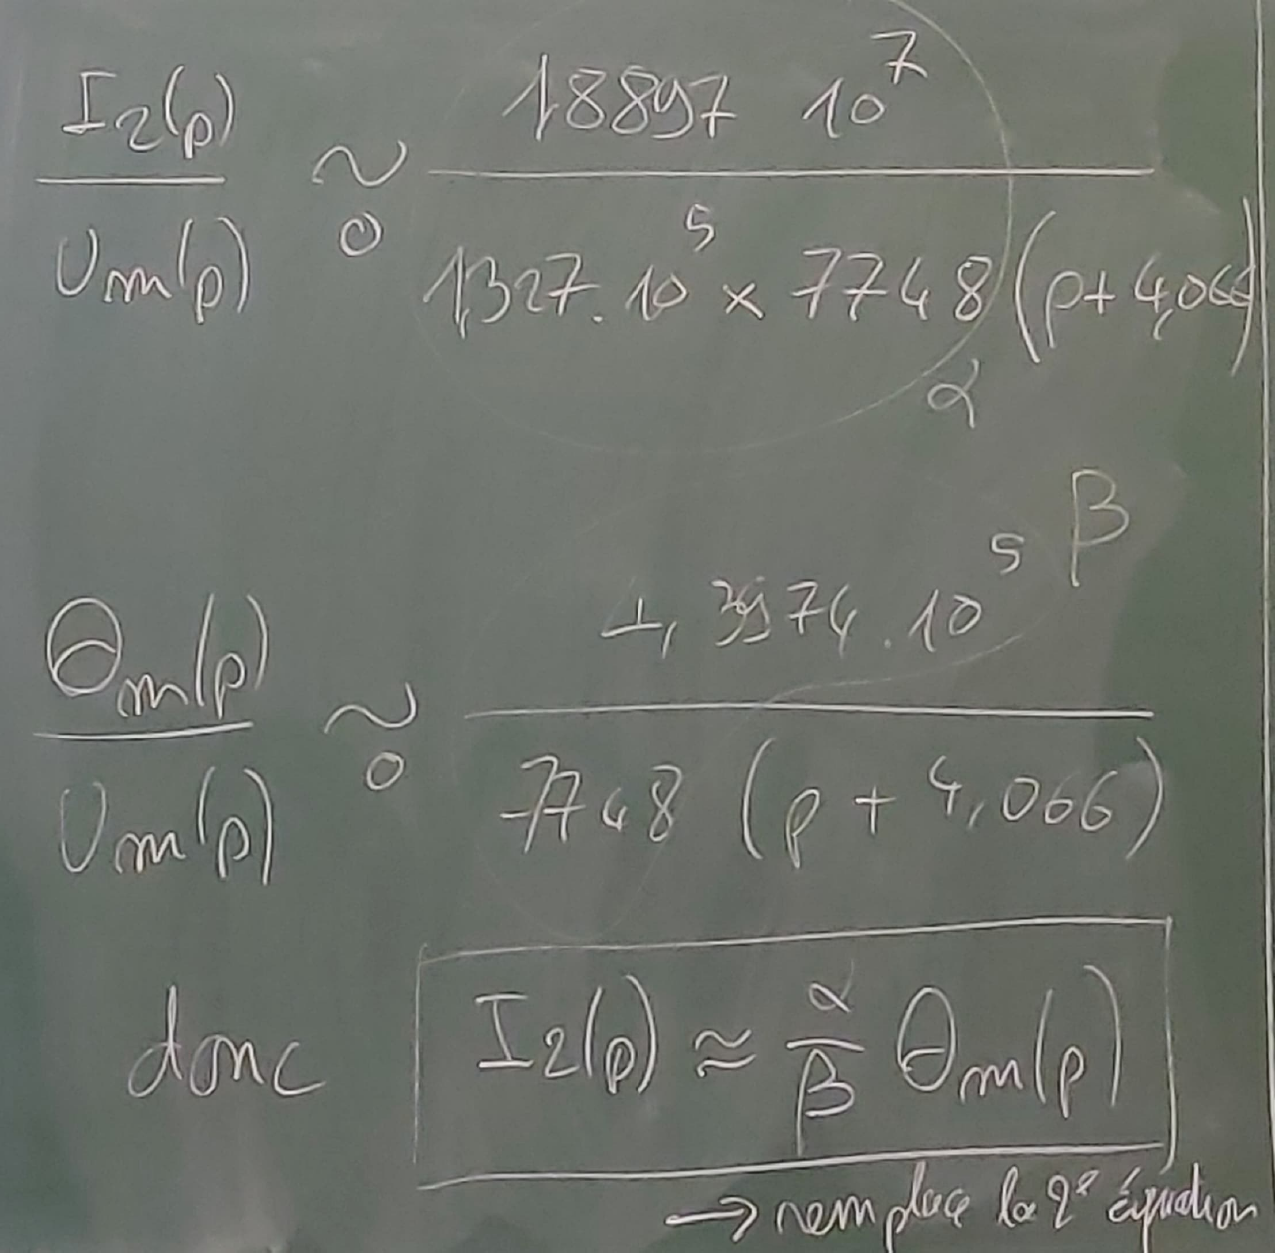 I₂(p) / Um(p) ~₀ 1,8897 10⁷ / 1,327.10⁵ × 7748 (p + 4,066)
α
β
Θm(p) / Um(p) ~₀ 1,3974.10⁵ / 7748 (p + 4,066)
donc I₂(p) ≈ α/β Θm(p)
→ remplace la 2e Équation